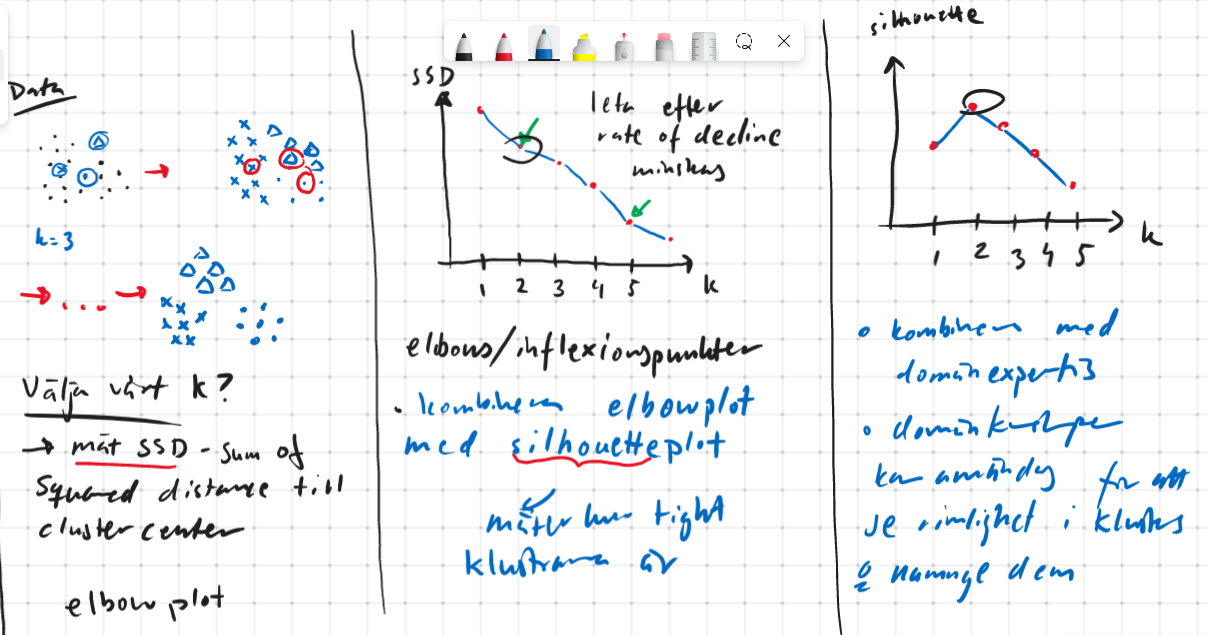 Data
k=3
Välja vårt k?
→ mät SSD - sum of
squared distance till
cluster center
elbow plot
SSD
leta efter
rate of decline
minskas
1 2 3 4 5 k
elbows/inflexionspunkter
• kombinera elbowplot
med silhouetteplot
mäter hur tight
klustrarna är
silhouette
1 2 3 4 5 k
• kombinera med
domänexpertis
• domänkunskaper
kan användas för att
se rimlighet i klusters
& namnge dem